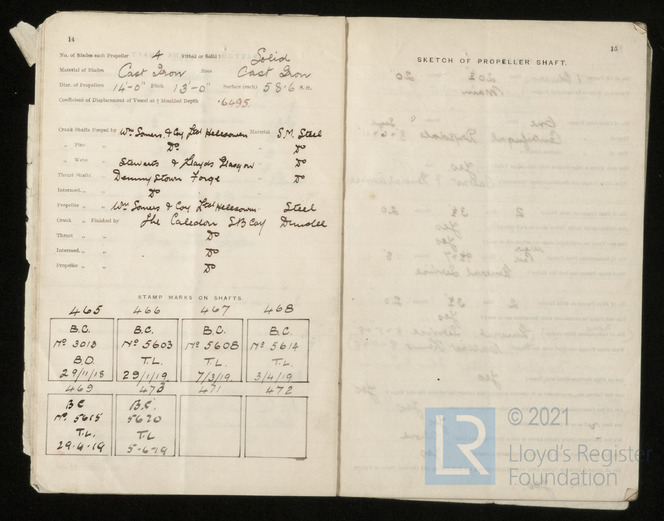 14
No. of Blades each Propeller 4 Fitted or Solid? Solid
Material of Blades Cast Iron Boss Cast Iron
Diar. of Propellers 14'-0" Pitch 13'-0" Surface (each) 58.6 S. ft.
Coefficient of Displacement of Vessel at ¾ Moulded Depth .6695
Crank Shafts Forged by Wm Somers & Coy Ltd Halesowen Material S.M. Steel
" Pins " Do " Do
" Webs " Stewarts & Lloyds Glasgow " Do
Thrust Shafts " Dennystown Forge " Do
Intermed. " " Do
Propeller " " Wm Somers & Coy Ltd Halesowen Steel
Crank " Finished by The Caledon S.B. Coy Dundee
Thrust " " Do
Intermed. " " Do
Propeller " " Do
STAMP MARKS ON SHAFTS.
465 466 467 468
B.C. B.C. B.C. B.C.
No 3018 No 5603 No 5608 No 5614
B.D. T.L. T.L. T.L.
29/11/18 29/1/19 7/3/19 3/4/19
469 470 471 472
B.C. B.C.
No. 5615 5620
T.L. T.L
29.4.19 5-6-19
15
SKETCH OF PROPELLER SHAFT.
© 2021
LR
Lloyd's Register
Foundation